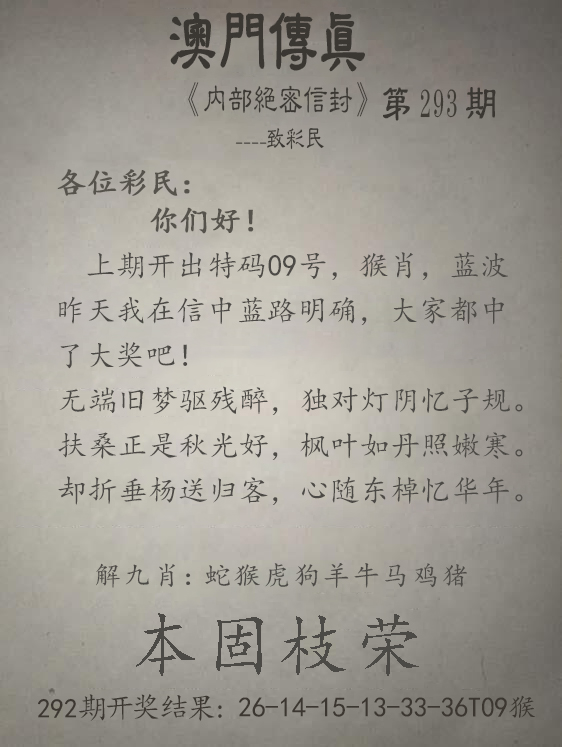 澳門傳眞
《内部絕密信封》第293期
----致彩民
各位彩民：
你们好！
上期开出特码09号，猴肖，蓝波
昨天我在信中蓝路明确，大家都中
了大奖吧！
无端旧梦驱残醉，独对灯阴忆子规。
扶桑正是秋光好，枫叶如丹照嫩寒。
却折垂杨送归客，心随东棹忆华年。
解九肖：蛇猴虎狗羊牛马鸡猪
本固枝荣
292期开奖结果：26-14-15-13-33-36T09猴